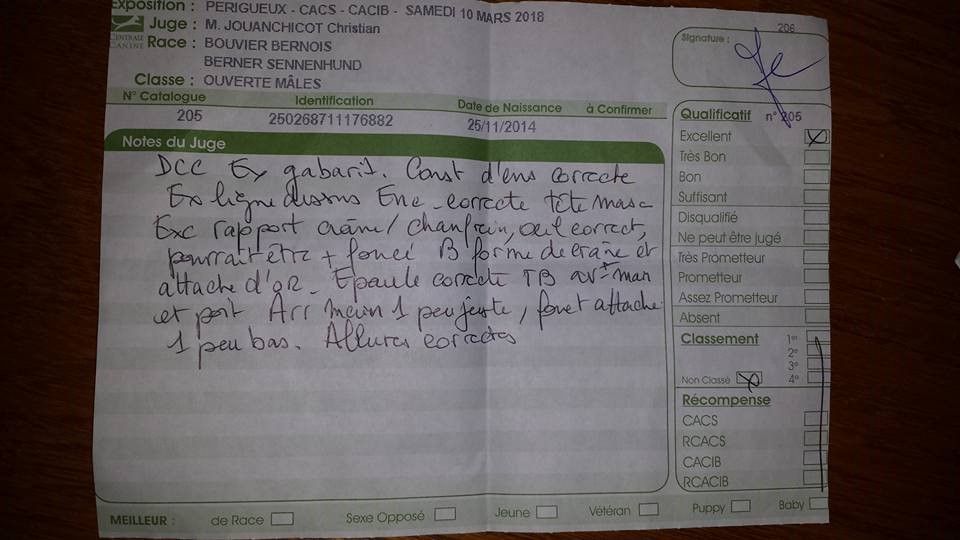 Exposition : PERIGUEUX - CACS - CACIB - SAMEDI 10 MARS 2018
Juge : M. JOUANCHICOT Christian
CENTRALE CANINE
Race : BOUVIER BERNOIS
BERNER SENNENHUND
Classe : OUVERTE MÂLES
N° Catalogue Identification Date de Naissance à Confirmer
205 250268711176882 25/11/2014
Notes du Juge
DCC Ex gabarit. Const d'ens correcte
Ex ligne dessus Enc correcte tête masc
Exc rapport crâne/chanfrein, oeil correct,
pourrait être + foncé B forme de crâne et
attache d'or. Epaule correcte TB avt main
et port Arr main 1 peu juste, fouet attache
1 peu bas. Allures correctes
206
Signature :
Qualificatif n° 205
Excellent
Très Bon
Bon
Suffisant
Disqualifié
Ne peut être jugé
Très Prometteur
Prometteur
Assez Prometteur
Absent
Classement 1er
2e
3e
Non Classé 4e
Récompense
CACS
RCACS
CACIB
RCACIB
MEILLEUR : de Race Sexe Opposé Jeune Vétéran Puppy Baby